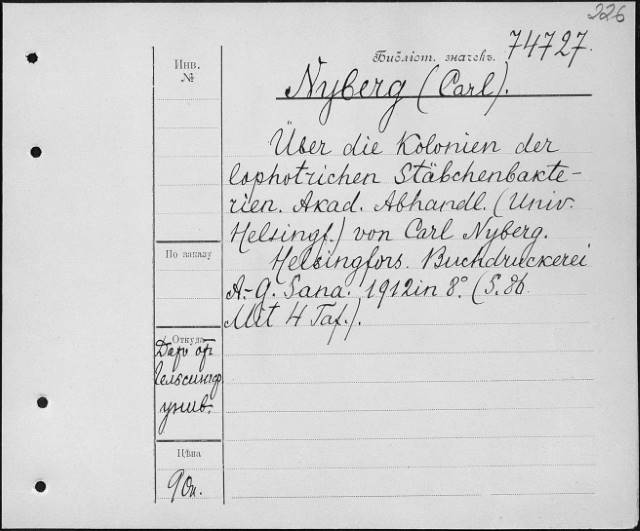 226
Инв.
№
Библіот. значокъ. 74727.
Nyberg (Carl).
Über die Kolonien der
lophotrichen Stäbchenbakte-
rien. Akad. Abhandl. (Univ.
Helsingf.) von Carl Nyberg.
Helsingfors. Buchdruckerei
A.-G. Sana. 1912 in 8º. (S. 86
Mit 4 Taf.).
По заказу
Откуда
Даръ от
Гельсингф
унив.
Цѣна